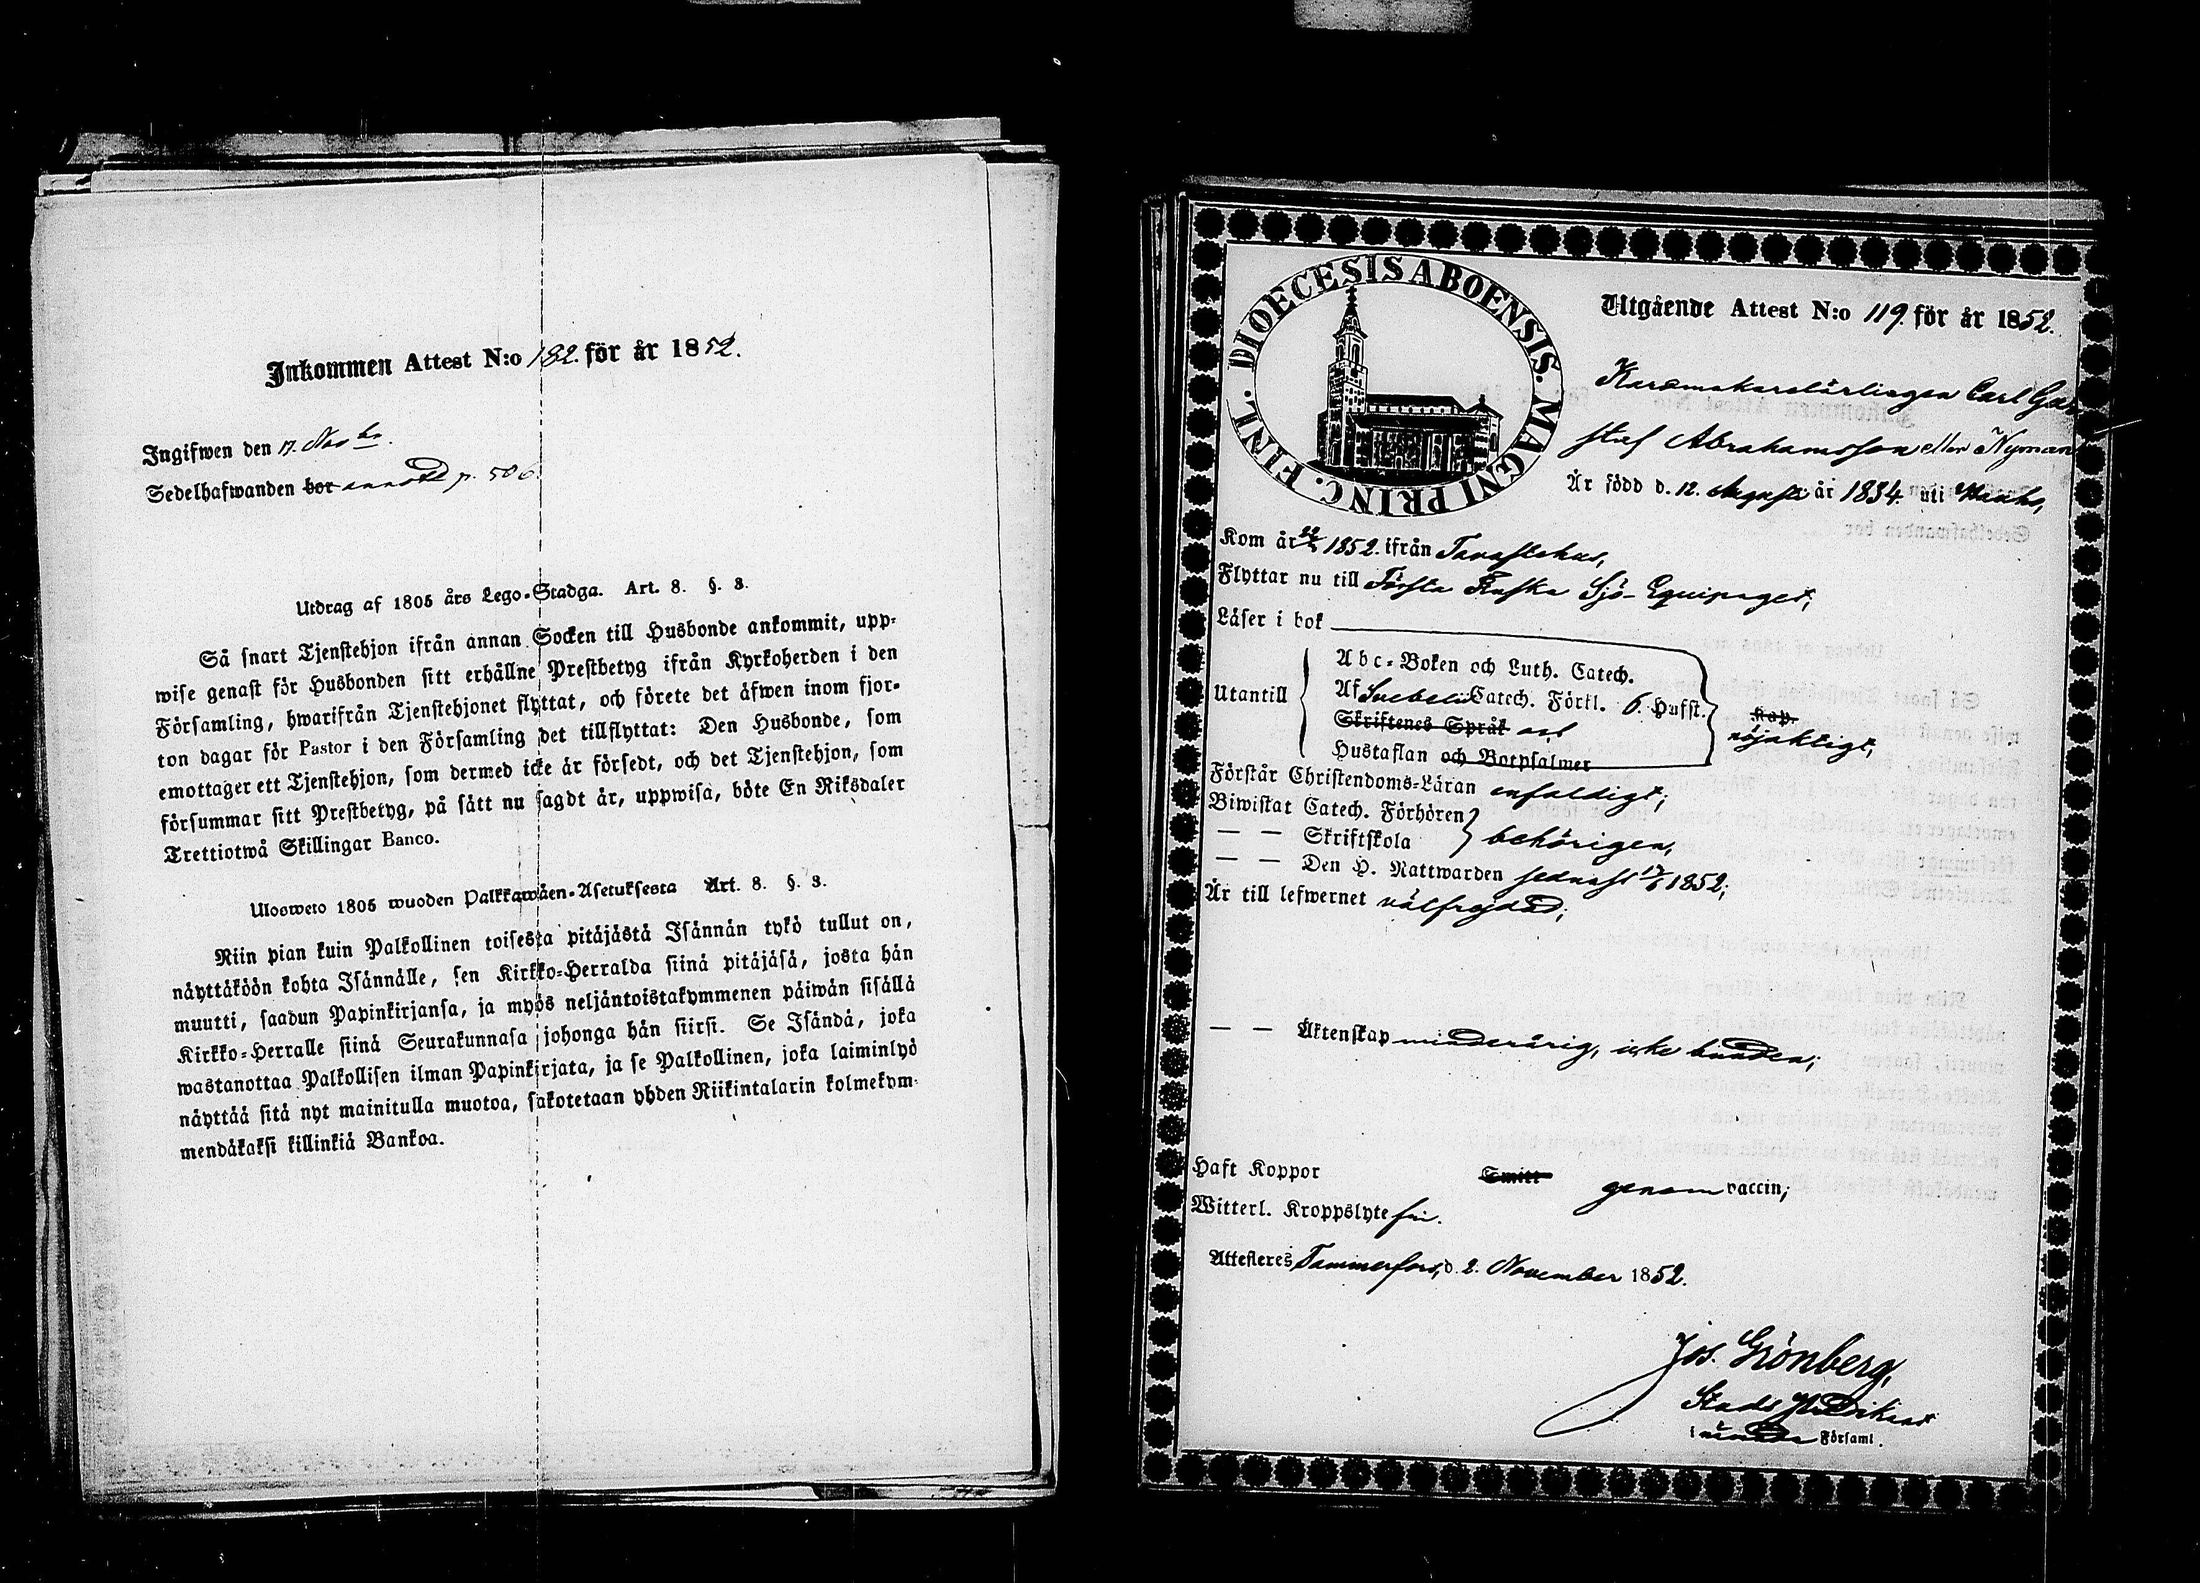 Inkommen Attest N:o 182. för år 1852.
Ingifwen den 17. Nov br.
Sedelhafwanden bor annotd p. 506.
Utdrag af 1805 års Lego-Stadga. Art. 8. §. 3.
Så snart Tjenstehjon ifrån annan Socken till Husbonde ankommit, upp-
wise genast för Husbonden sitt erhållne Prestbetyg ifrån Kyrkoherden i den
Församling, hwarifrån Tjenstehjonet flyttat, och förete det äfwen inom fjor-
ton dagar för Pastor i den Församling det tillflyttat: Den Husbonde, som
emottager ett Tjenstehjon, som dermed icke är försedt, och det Tjenstehjon, som
försummar sitt Prestbetyg, på sätt nu sagdt är, uppwisa, böte En Riksdaler
Trettiotwå Skillingar Banco.
Ulosweto 1805 wuoden Palkkawäen-Asetuksesta Art. 8. §. 3.
Niin pian kuin Palkollinen toisesta pitäjästä Isännän tykö tullut on,
näyttäköön kohta Isännälle, sen Kirkko-Herralda siinä pitäjäsä, josta hän
muutti, saadun Papinkirjansa, ja myös neljäntoistakymmenen päiwän sisällä
Kirkko-Herralle siinä Seurakunnasa johonga hän siirsi. Se Isändä, joka
wastanottaa Palkollisen ilman Papinkirjata, ja se Palkollinen, joka laiminlyö
näyttää sitä nyt mainitulla muotoa, sakotetaan yhden Riikintalarin kolmekym-
mendäkaksi killinkiä Bankoa.
DIOECESIS ABOENSIS. MAGNI PRINC. FINL.
Utgående Attest N:o 119. för år 1852.
Karamakarelärlingen Carl Gu-
staf Abrahamsson eller Nyman
Är född d. 12. Augusti år 1834. uti
Kom år 1852. ifrån Tavastehus,
Flyttar nu till Första Finska Sjö-Equipaget,
Läser i bok
Utantill
Abc-Boken och Luth. Catech.
Af Svebelii Catech. Förkl. 6. Hufst.
Skriftenes Språk och
Hustaflan och Botpsalmer
Kap.
nöjaktigt,
Förstår Christendoms-Läran enfaldigt;
Biwistat Catech. Förhören
— — Skriftskola
behörigen,
— — Den H. Nattwarden sednast 1852;
Är till lefwernet välfrejdad;
— — Äktenskap minderårig, icke bunden;
Haft Koppor Smitt genom vaccin;
Witterl. Kroppslyte fri.
Attesteres Tammerfors, d. 2. November 1852.
Jos. Grönberg,
Stads Predikant
i Församl.